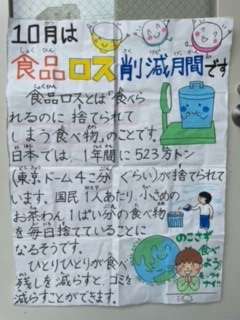 10月は
食品ロス削減月間です
しょく ひん
さく げん げっ かん
食品ロスとは「食べら
れるのに 捨てられて
しまう食べ物」のことです。
日本では、1年間に 523万トン
(東京ドーム4こ分 くらい)が捨てられて
います。国民1人あたり、小さめの
お茶わん1ぱい分の食べ物
を毎日捨てていることに
なるそうです。
ひとりひとりが食べ
残しを減らすと、ゴミを
減らすことができます。
のこさず
食べ
よう